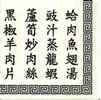 蛤肉魚翅湯
豉汁蒸龍蝦
蘆筍炒肉絲
黑椒羊肉片